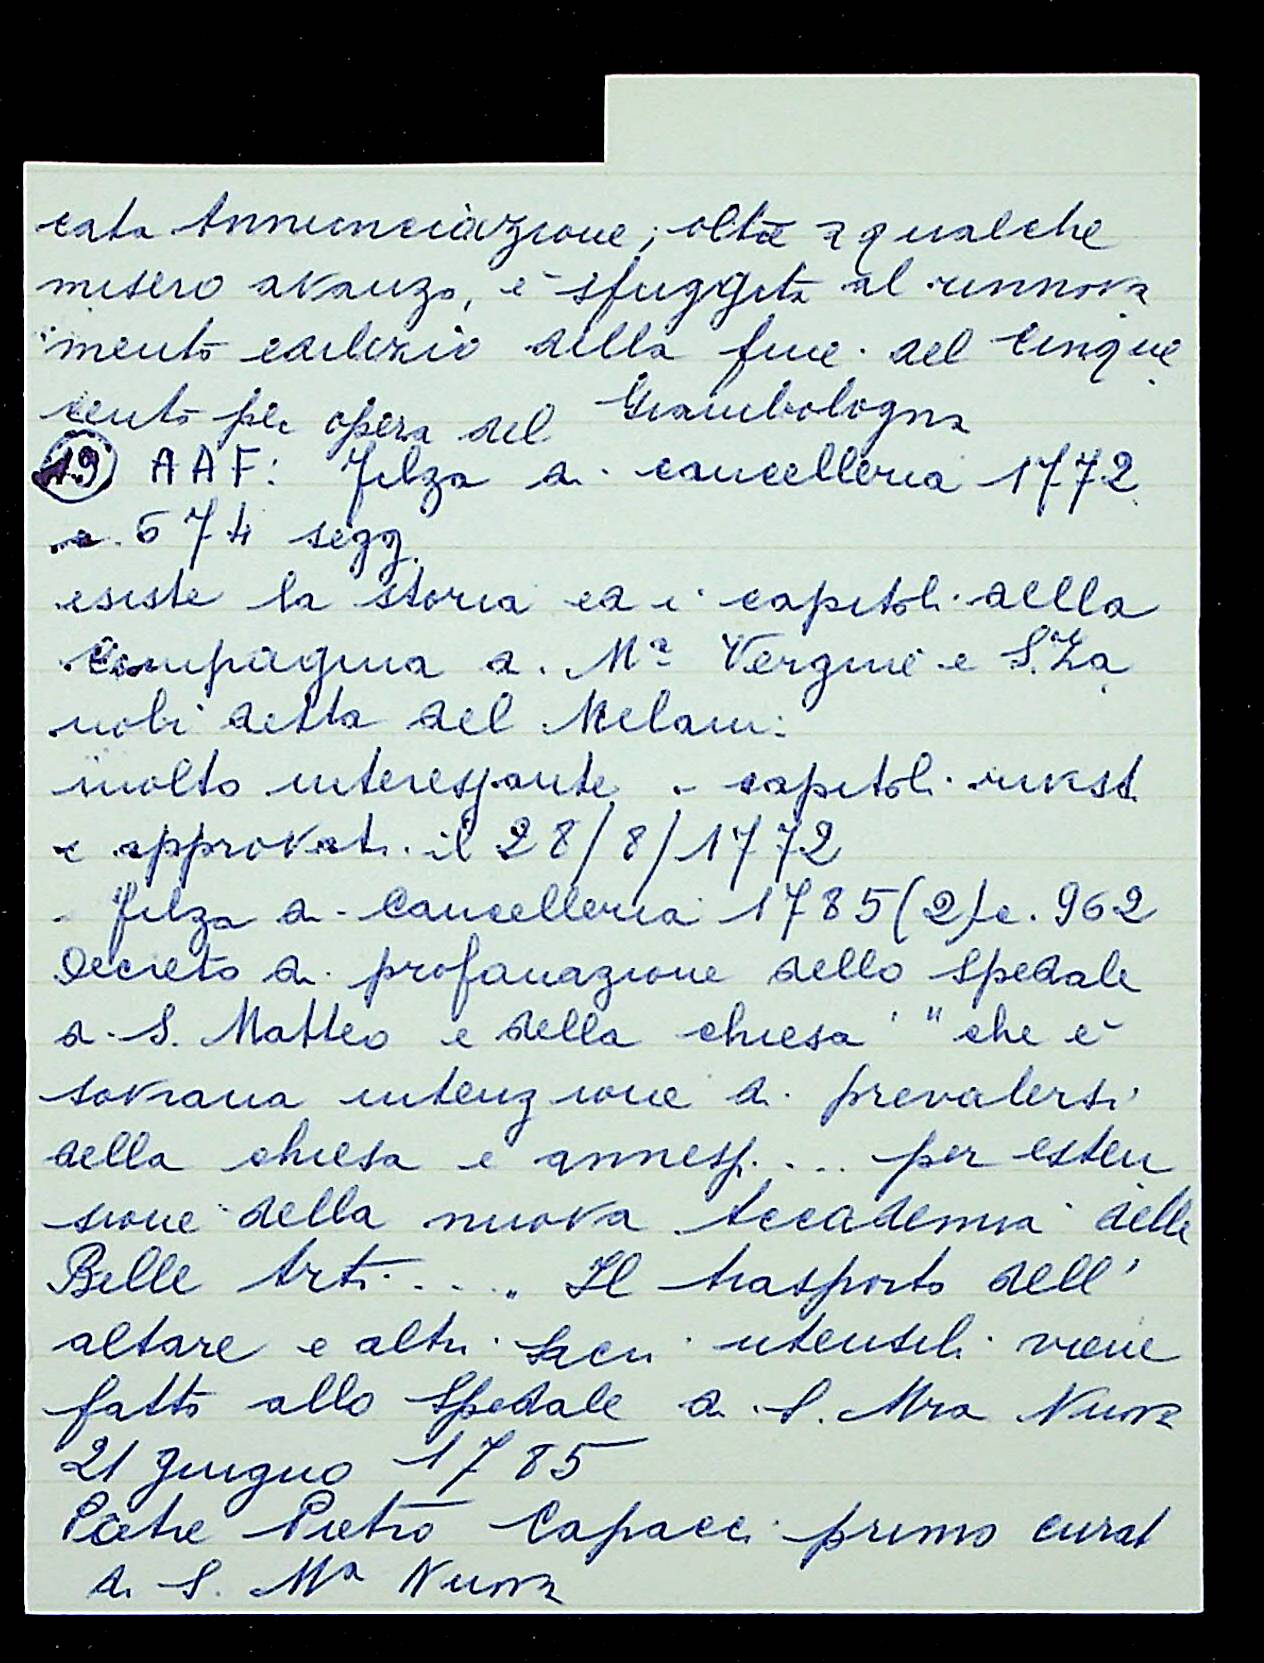 cata Annunciazione; oltre a qualche
misero avanzo, è sfuggita al rinnova
mento edilizio della fine del Cinque
cento per opera del Giambologna
19 AAF: Filza di cancelleria 1772
c. 674 segg.
esiste la storia ed i capitoli della
Compagnia di Mª Vergine e S. Za
nobi detta del Melani:
molto interessante - capitoli rivisti
e approvati il 28/8/1772
- Filza di Cancelleria 1785 (2) c. 962
Decreto di profanazione dello Spedale
di S. Matteo e della chiesa " che è
sovrana intenzione di prevalersi
della chiesa e annessi .... per esten
sione della nuova Accademia delle
Belle Arti .... Il trasporto dell'
altare e altri sacri utensili viene
fatto allo Spedale di S. Mra Nuova
21 giugno 1785
Padre Pietro Capacci primo curat
di S. Mª Nuova